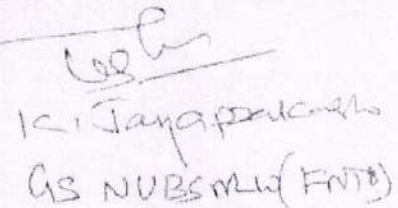 K. Jayaprakash
GS NUBSNLW (FNTO)